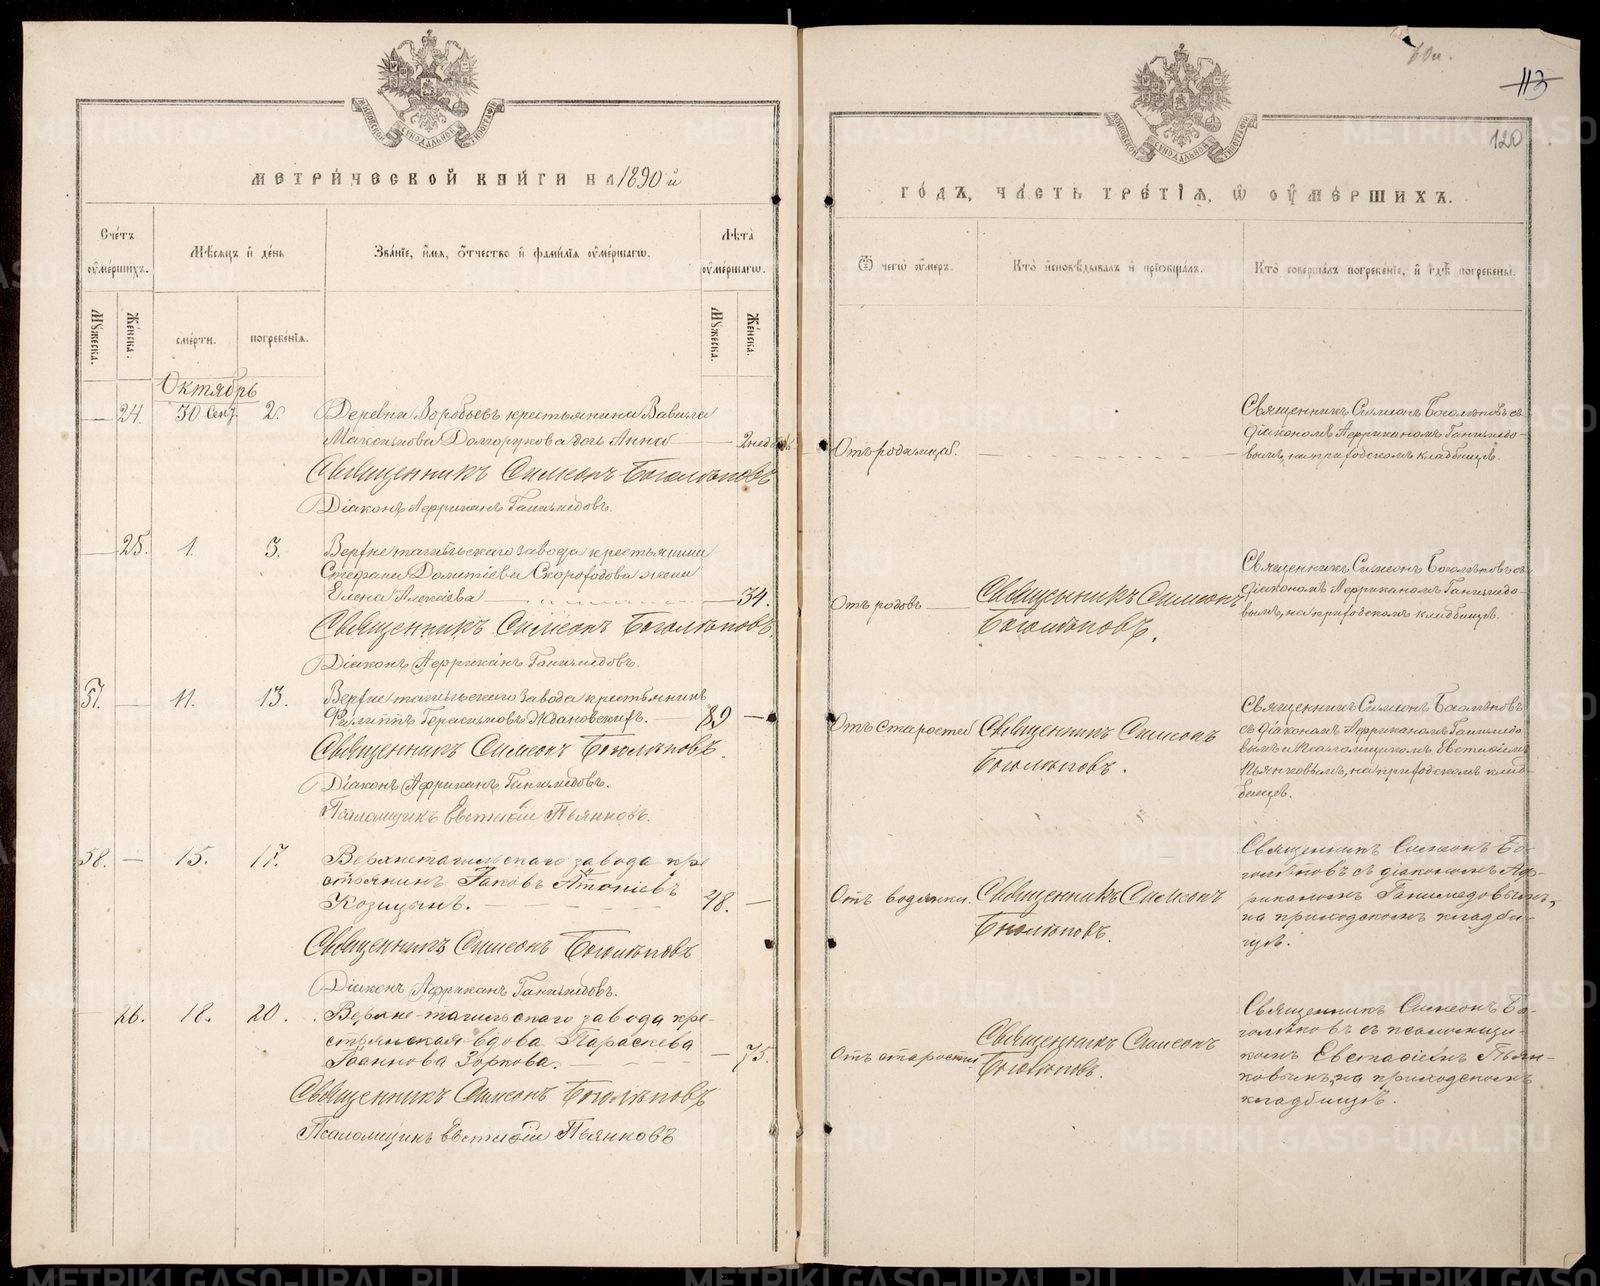 МЕТРИ́ЧЕСКОЙ КНИ́ГИ НА 1890 й
Сче́тъ ᲂу҆ме́ршихъ.
Мѣ́сяцъ и҆ де́нь
Зва́нїе, и҆́мя, ѻ҆́тчество и҆ фами́лїя ᲂу҆ме́ршагѡ.
Лѣ́та ᲂу҆ме́ршагѡ.
Мꙋ́жеска.
Же́нска.
сме́рти.
погребе́нїя.
Мꙋ́жеска.
Же́нска.
Октябрь
— 24. 30 Сент. 2. Деревни Воробьевъ крестьянина Вавила
Максимова Долгорукова дочь Анна — 2 недѣль
Священникъ Симеонъ Боголѣповъ
Діаконъ Африканъ Ганимедовъ.
— 25. 1. 3. Верхнетагильскаго завода крестьянина
Стефана Домитіева Скороходова жена
Елена Алексіева — 34.
Священникъ Симеонъ Боголѣповъ.
Діаконъ Африканъ Ганимедовъ.
57. — 11. 13. Верхнетагильскаго завода крестьянинъ
Филиппъ Герасимовъ Ждановскихъ. 89 —
Священникъ Симеонъ Боголѣповъ.
Діаконъ Африканъ Ганимедовъ.
Псаломщикъ Евстафій Пьянковъ.
58. — 15. 17. Верхнетагильскаго завода кре
стьянинъ Іаковъ Антоніевъ
Козицынъ. — 48. —
Священникъ Симеонъ Боголѣповъ
Діаконъ Африканъ Ганимедовъ.
26. 18. 20. Верхне-тагильскаго завода кре-
стьянская вдова Параскева
Іоаннова Зоркова. — 75.
Священникъ Симеонъ Боголѣповъ
Псаломщикъ Евстафій Пьянковъ
113
120
ГО́ДЪ, ЧА́СТЬ ТРЕ́ТІЯ, Ѡ҆ ОУ҆МЕ́РШИХЪ.
Ѿ чегѡ̀ ᲂу҆́меръ.
Кто̀ и҆сповѣ́дывалъ и҆ прїѡбща́лъ.
Кто̀ соверша́лъ погребе́нїе, и҆ гдѣ̀ погребены̀.
Отъ родимца.
Священникъ Симеонъ Боголѣповъ съ
діакономъ Африканомъ Ганимедо-
вымъ, на приходскомъ кладбищѣ.
Отъ родовъ —
Священникъ Симеонъ
Боголѣповъ.
Священникъ Симеонъ Боголѣповъ съ
діакономъ Африканомъ Ганимедо-
вымъ, на приходскомъ кладбищѣ.
Отъ старости
Священникъ Симеонъ
Боголѣповъ.
Священникъ Симеонъ Боголѣповъ
съ діакономъ Африканомъ Ганимедо-
вымъ и псаломщикомъ Евстафіемъ
Пьянковымъ, на приходскомъ клад-
бищѣ.
Отъ водянки.
Священникъ Симеонъ
Боголѣповъ.
Священникъ Симеонъ Бо-
голѣповъ съ діакономъ Аф-
риканомъ Ганимедовымъ,
на приходскомъ кладби-
щѣ.
Отъ старости.
Священникъ Симеонъ
Боголѣповъ.
Священникъ Симеонъ Бо-
голѣповъ съ псаломщи-
комъ Евстафіемъ Пьян-
ковымъ, на приходскомъ
кладбищѣ.
METRIKI.GASO-URAL.RU